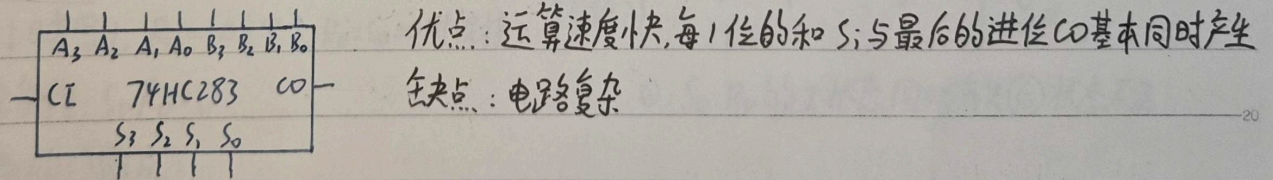 A₃ A₂ A₁ A₀ B₃ B₂ B₁ B₀
CI 74HC283 CO
S₃ S₂ S₁ S₀
优点：运算速度快,每1位的和Sᵢ与最后的进位CO基本同时产生
缺点：电路复杂
20